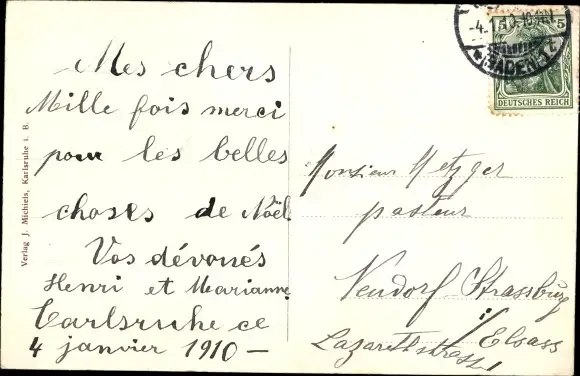 Mes chers
Mille fois merci
pour les belles
choses de Noël
Vos dévoués
Henri et Marianne
Carlsruhe ce
4 janvier 1910 —
Monsieur Metzger
pasteur
Neudorf-Strassburg
i/ Elsass
Lazarethstrasse
Verlag J. Michiels, Karlsruhe i. B.
5
DEUTSCHES REICH
-4.1.10.
(BADEN)